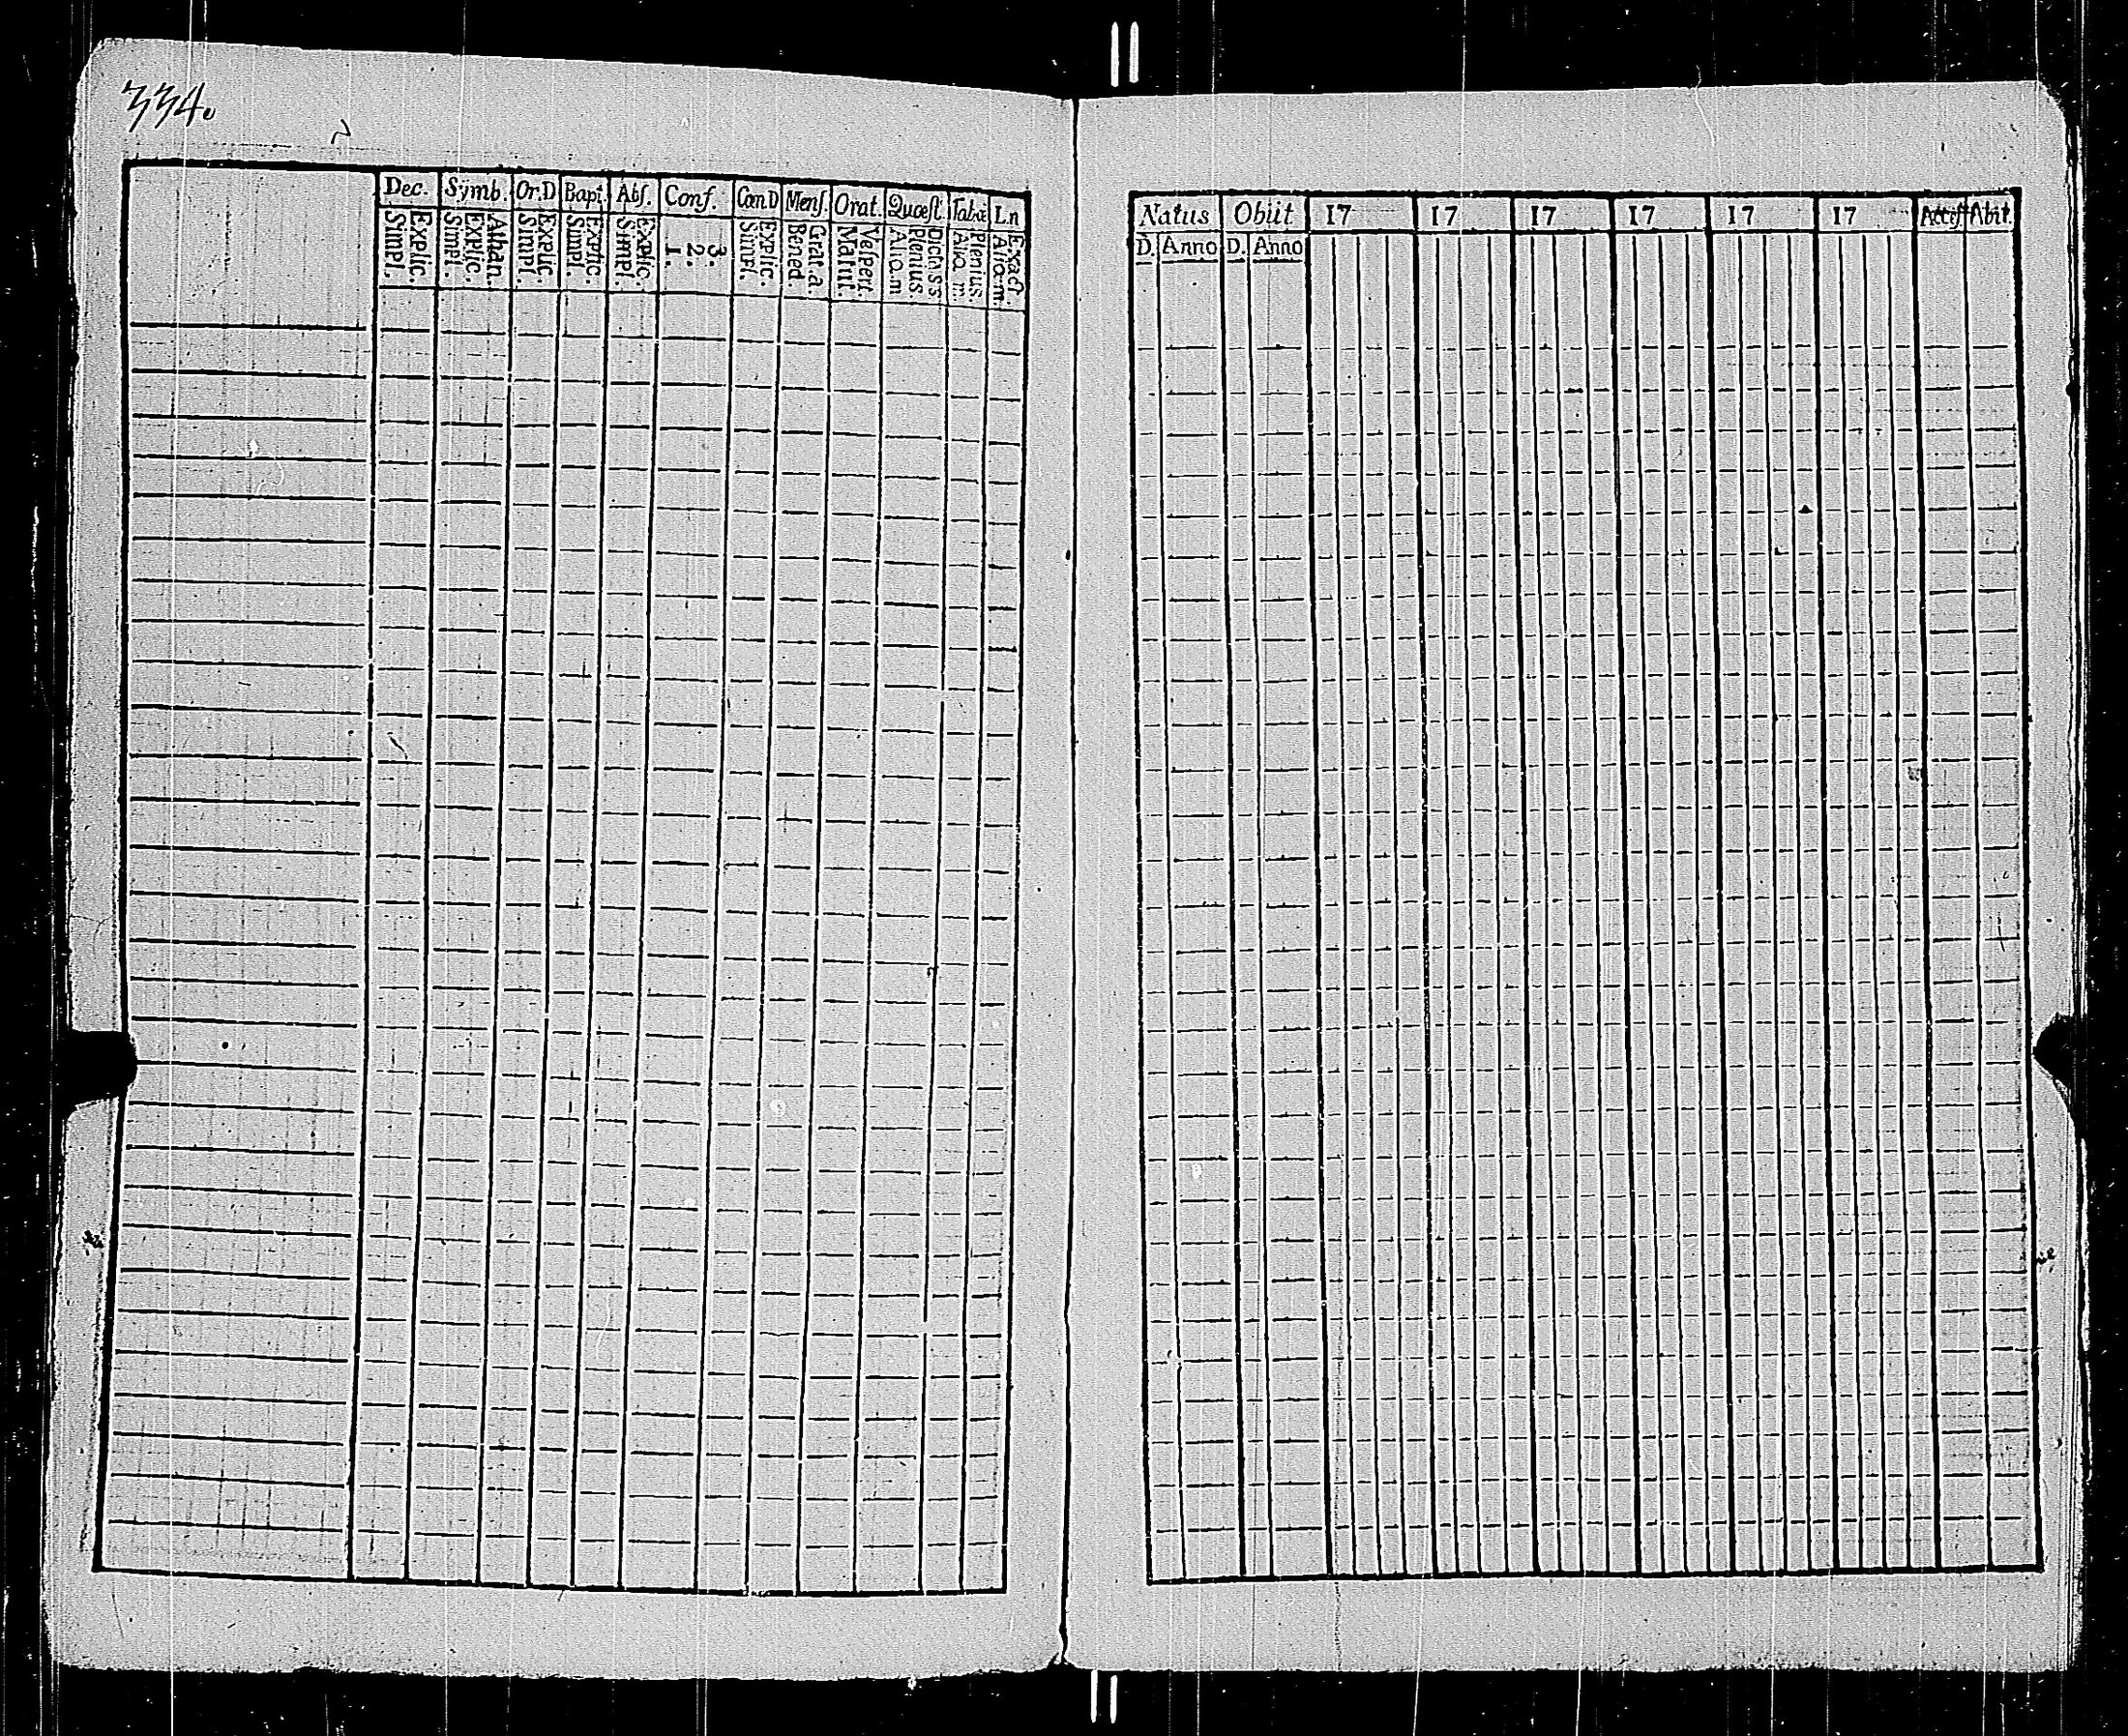 334.
Dec. Symb. Or.D Bapt. Abſ. Conf. Cœn.D Menſ. Orat. Quœſt. Tabœ L.n
Explic. Simpl. Athan. Explic. Simpl. Explic. Simpl. Explic. Simpl. Explic. Simpl. 3. 2. 1. Explic. Simpl. Grat.a. Bened. Veſpert. Matut. Dict.ſ.s. Plenius. Aliq.m Plenius Aliq.m. Exact. Aliq.m.
Natus Obiit 17 17 17 17 17 17 Acceſſ Abit.
D. Anno D. Anno